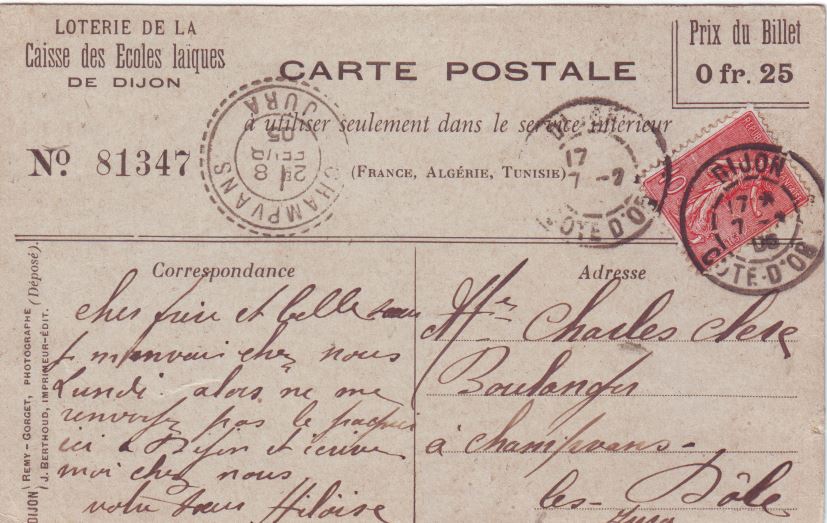 LOTERIE DE LA
Caisse des Ecoles laïques
DE DIJON
CARTE POSTALE
Prix du Billet
0 fr. 25
à utiliser seulement dans le service intérieur
Nº 81347
(FRANCE, ALGÉRIE, TUNISIE)
CHAMPVANS
8
FEVR
05
JURA
17
7 -2
COTE D'OR
DIJON
17
7 -2
05
COTE-D'OR
10
Correspondance
cher frère et belle soeur
je m'en vais chez nous
Lundi alors ne me
renvoyez pas le paquet
ici à Dijon et écrive
moi chez nous
votre soeur Hiloïse
Adresse
Mr Charles
Boulanger
à Champvans-
les-Dôle
Jura
DIJON
REMY-GORGET, PHOTOGRAPHE (Déposé).
J. BERTHOUD, IMPRIMEUR-ÉDIT.